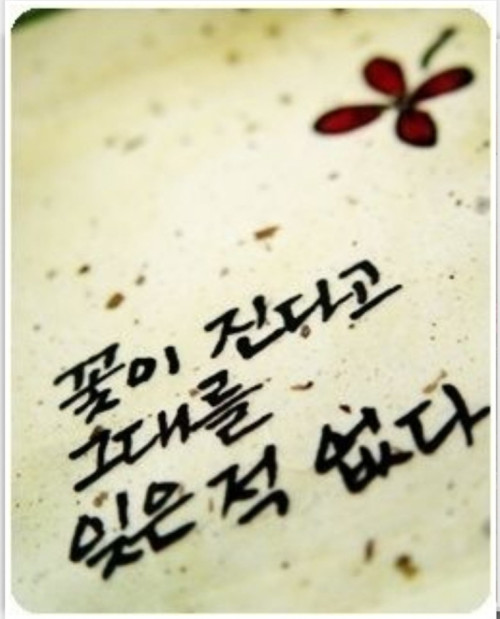 꽃이 진다고
그대를
잊은 적 없다